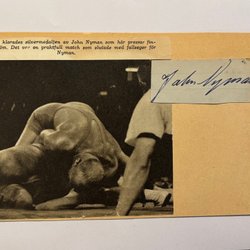 klarades silvermedaljen av John Nyman, som här pressar fin-
Det var en praktfull match som slutade med fallseger för
Nyman.
John Nyman